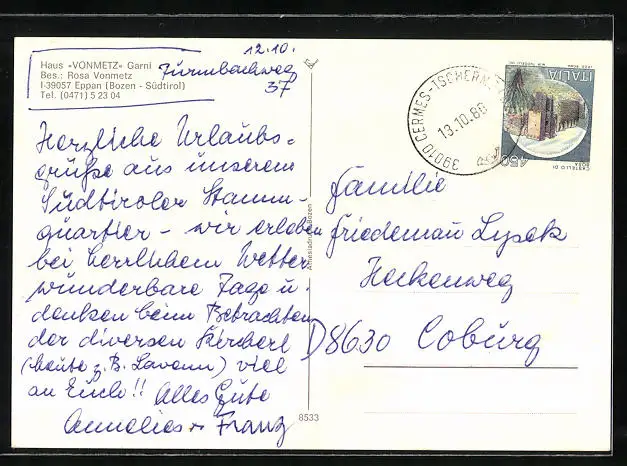 12.10.
Haus «VONMETZ» Garni
Bes.: Rosa Vonmetz
I-39057 Eppan (Bozen - Südtirol)
Tel. (0471) 5 23 04
37
Herzliche Urlaubs-
grüße aus unserem
Südtiroler Stamm-
quartier - wir erleben
bei herrlichem Wetter
wunderbare Tage u.
denken beim Betrachten
der diversen Kircherl
(heute z.B. Lavenn) viel
an Euch!! Alles Gute
Annelies + Franz
8533
39010 CERMES-TSCHERM
13.10.88
ITALIA
450
CASTELLO DI
Familie
Friedemau Lysek
Heckenweg
D 8630 Coburg